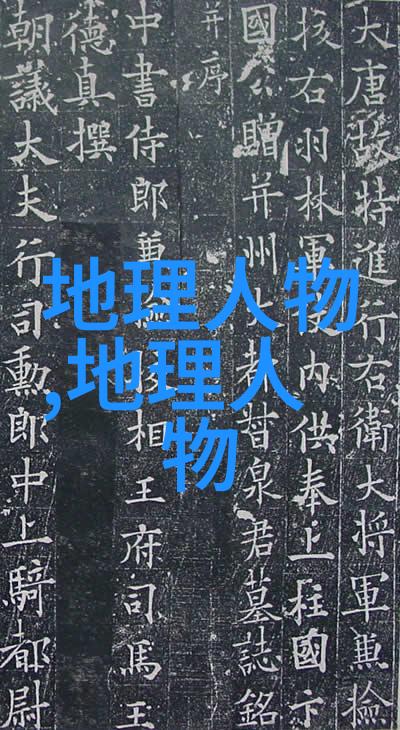 大唐故特進行右衛大將軍兼檢
校右羽林軍內供奉上柱國卞
國公贈并州大都督泉君墓誌銘
并序
中書侍郎兼檢校相王府司馬王
德真撰
朝議大夫行司勳郎中上騎都尉
地理人物
,地理人
物